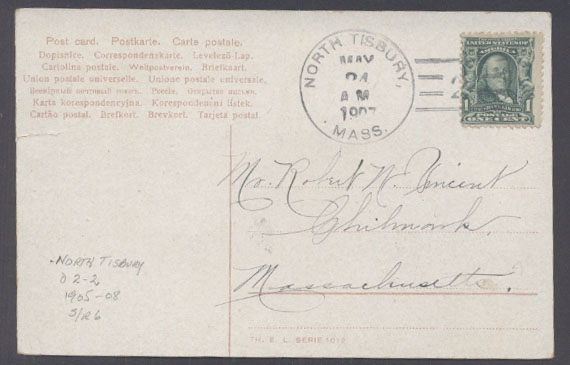 Post card. Postkarte. Carte postale.
Dopisnice. Correspondenzkarte. Levelező-Lap.
Cartolina postale. Weltpostverein. Briefkaart.
Union postale universelle. Unione postale universale.
Karta korespondencyjna. Korespondenčni listek.
Cartão postal. Brefkort. Brevkort. Tarjeta postal.
NORTH TISBURY,
MAY
24
AM
1907
MASS.
UNITED STATES OF
AMERICA
1 1
POSTAGE
ONE CENT
Mr. Robert W. Vincent
Chilmark.
Massachusetts.
NORTH TISBURY
D 2-2
1905-08
S/R6
TH. E. L. SERIE 1012